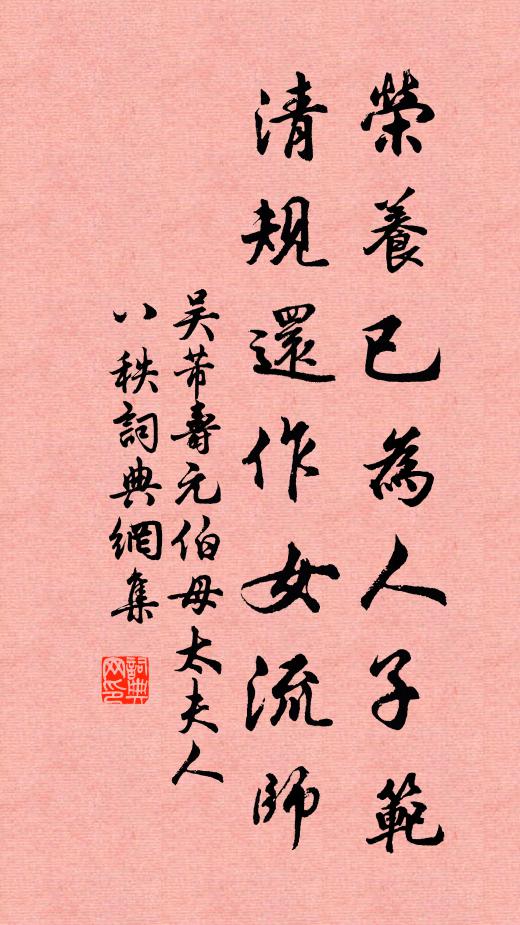 榮養已為人子範
清規還作女流師
吴芾壽元伯母太夫人
八秩詞典網集
詞典網印